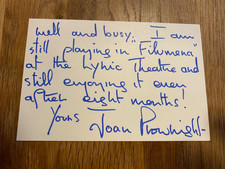 well and busy. I am
still playing in 'Filumena'
at the Lyric Theatre and
still enjoying it even
after eight months!
Yours
Joan Plowright.